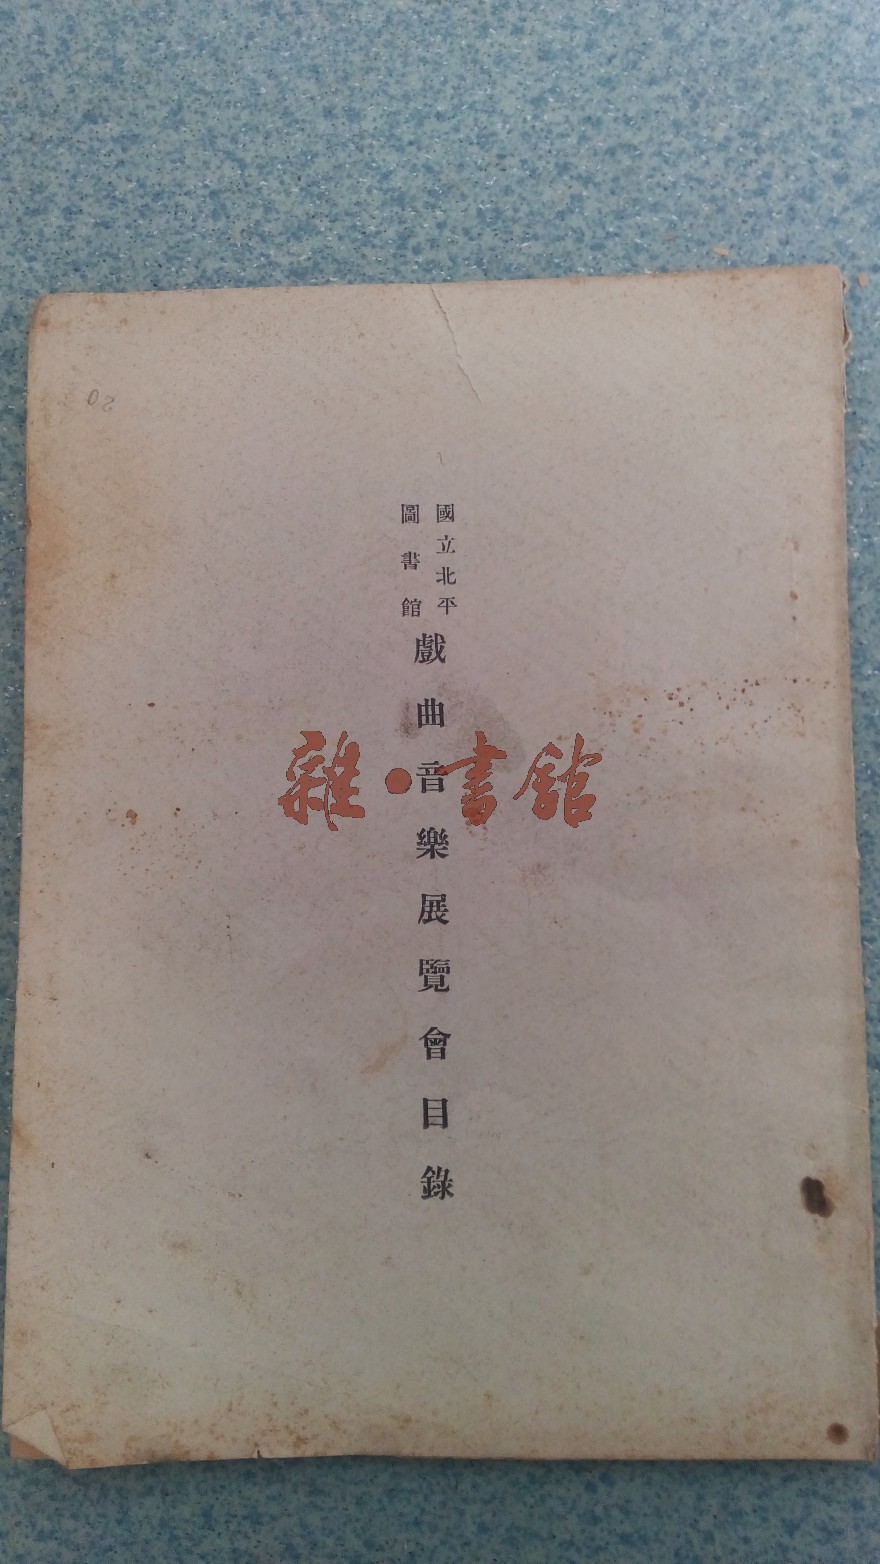 國立北平
圖書館
戲曲音樂展覽會目錄
雜·書館
20